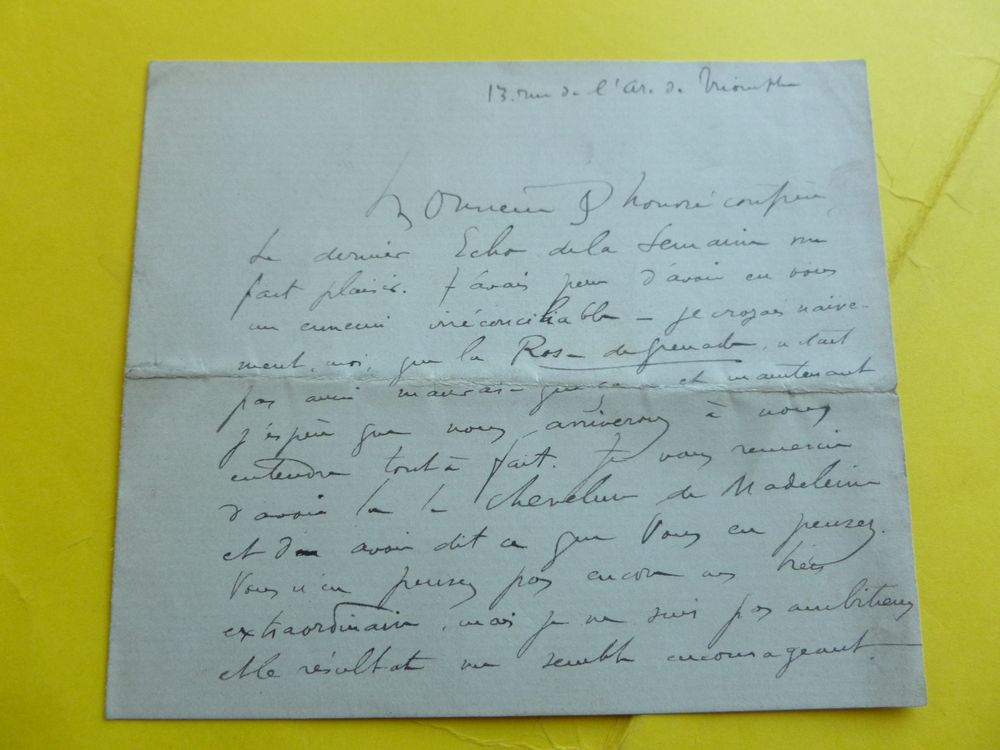 13. rue de l'Arc de Triomphe
Monsieur & honoré confrère,
Le dernier Echo de la Semaine me
fait plaisir. J'avais peur d'avoir en vous
un ennemi irréconciliable — je croyais naïve-
ment, moi, que la Rose de Grenade, n'était
pas aussi mauvaise que ça — et maintenant
j'espère que nous arriverons à nous
entendre tout à fait. Je vous remercie
d'avoir lu la Chevelure de Madeleine
et d'en avoir dit ce que vous en pensez.
Vous n'en pensez pas encore des très
extraordinaire, mais je ne suis pas ambitieux
et le résultat me semble encourageant.